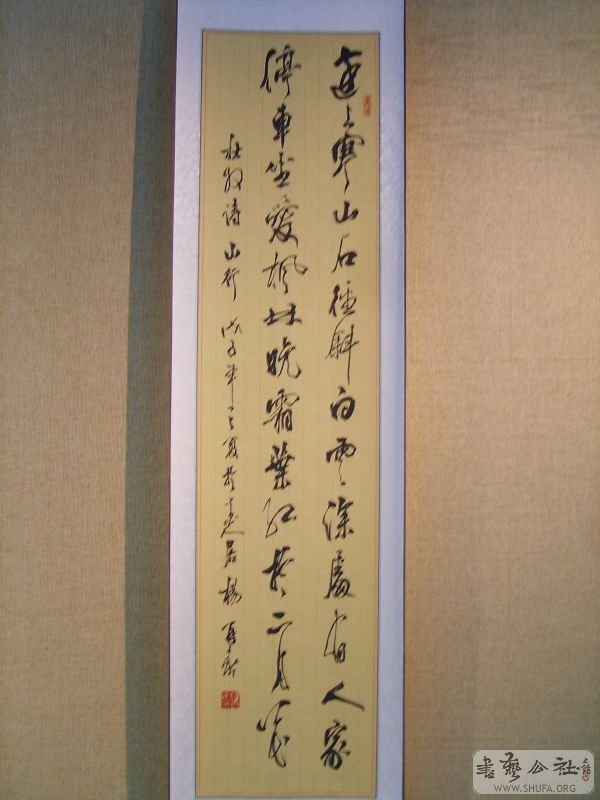 远上寒山石径斜白云深处有人家
停车坐爱枫林晚霜叶红于二月花
杜牧诗山行戊子年之夏于居杨
书艺公社
WWW.SHUFA.ORG